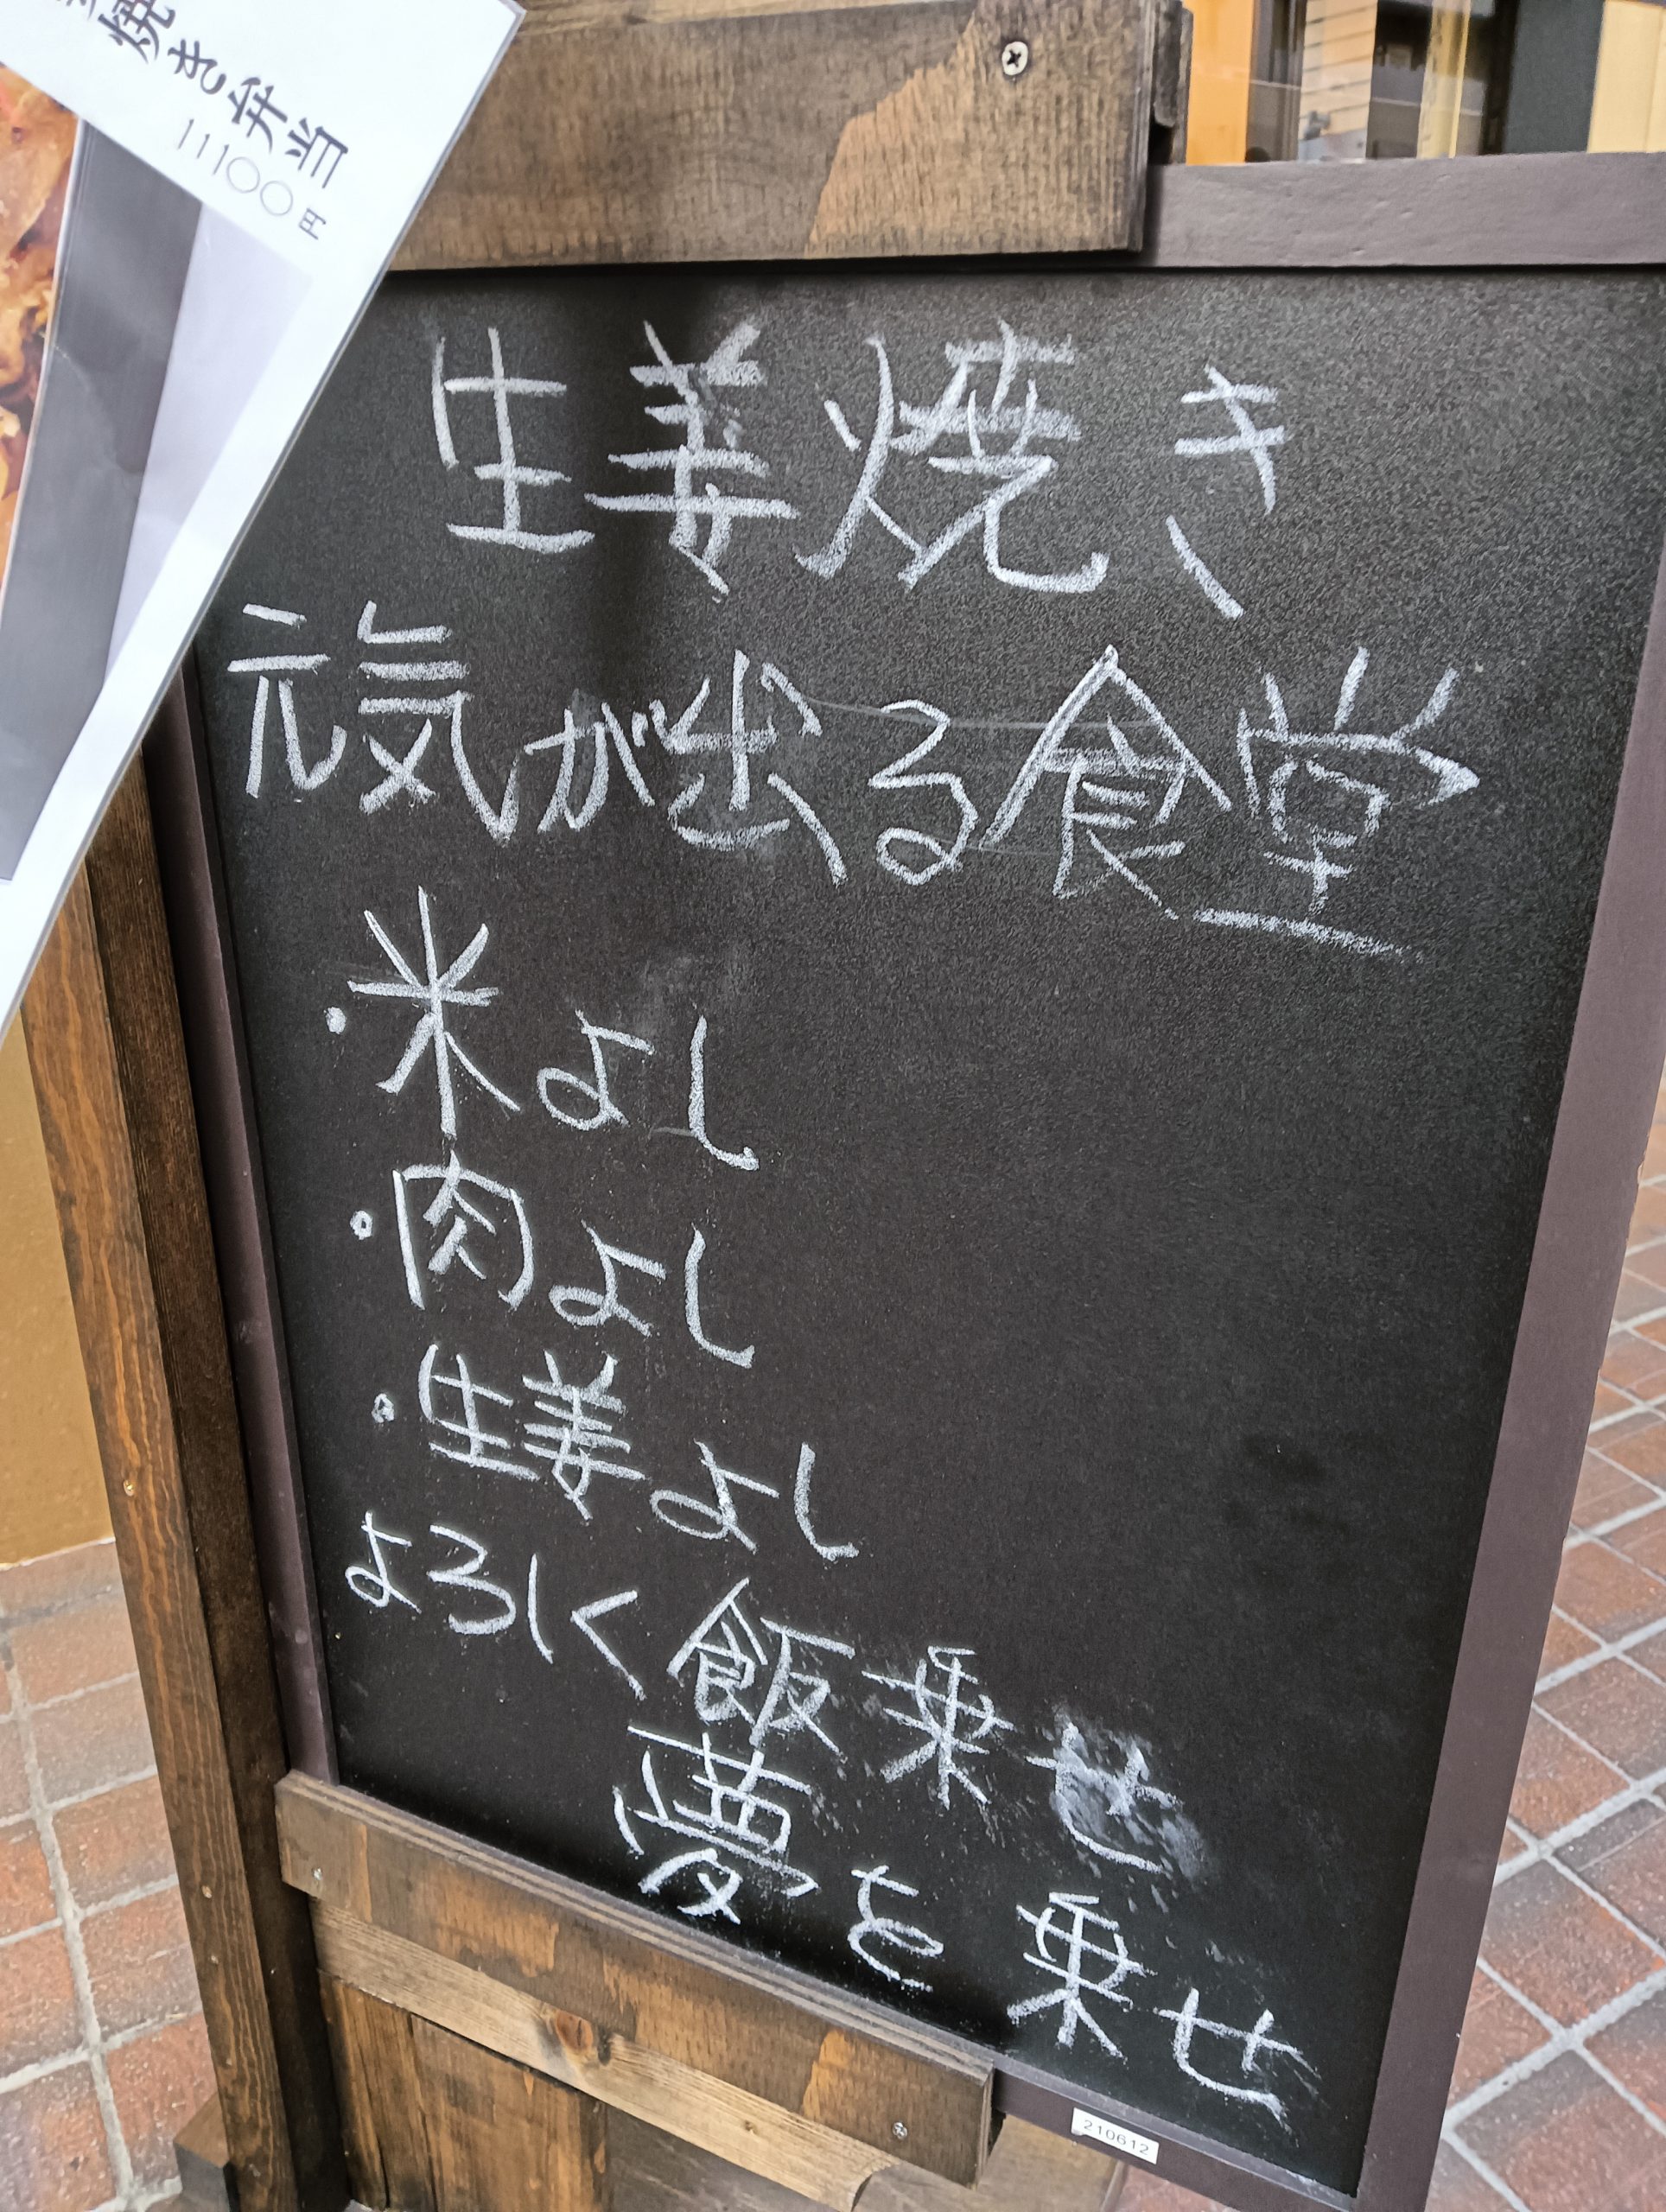 焼き弁当
1100円
生姜焼き
元気が出る食堂
・米よし
・肉よし
・生姜よし
よろしく飯乗せ
夢を乗せ
210612